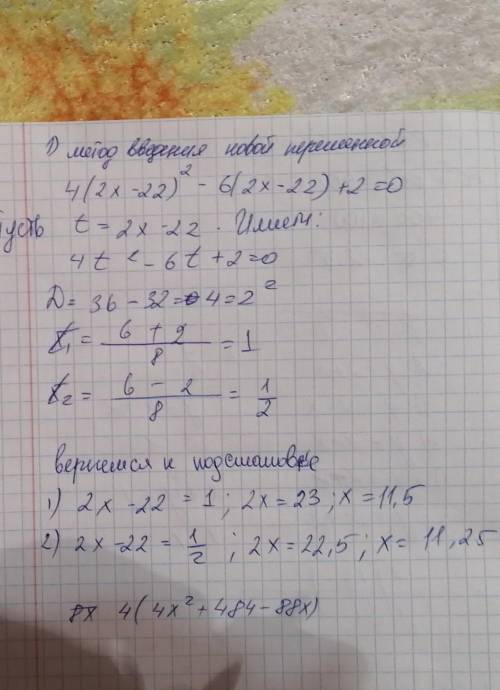 1) метод введения новой переменной
4(2x-22)² - 6(2x-22)+2=0
Пусть t = 2x-22. Имеем:
4t² - 6t + 2 = 0
D = 36 - 32 = 4 = 2²
t₁ = (6 + 2)/8 = 1
t₂ = (6 - 2)/8 = 1/2
вернемся к подстановке
1) 2x - 22 = 1; 2x = 23; x = 11,5
2) 2x - 22 = 1/2; 2x = 22,5; x = 11,25
4(4x² + 484 - 88x)